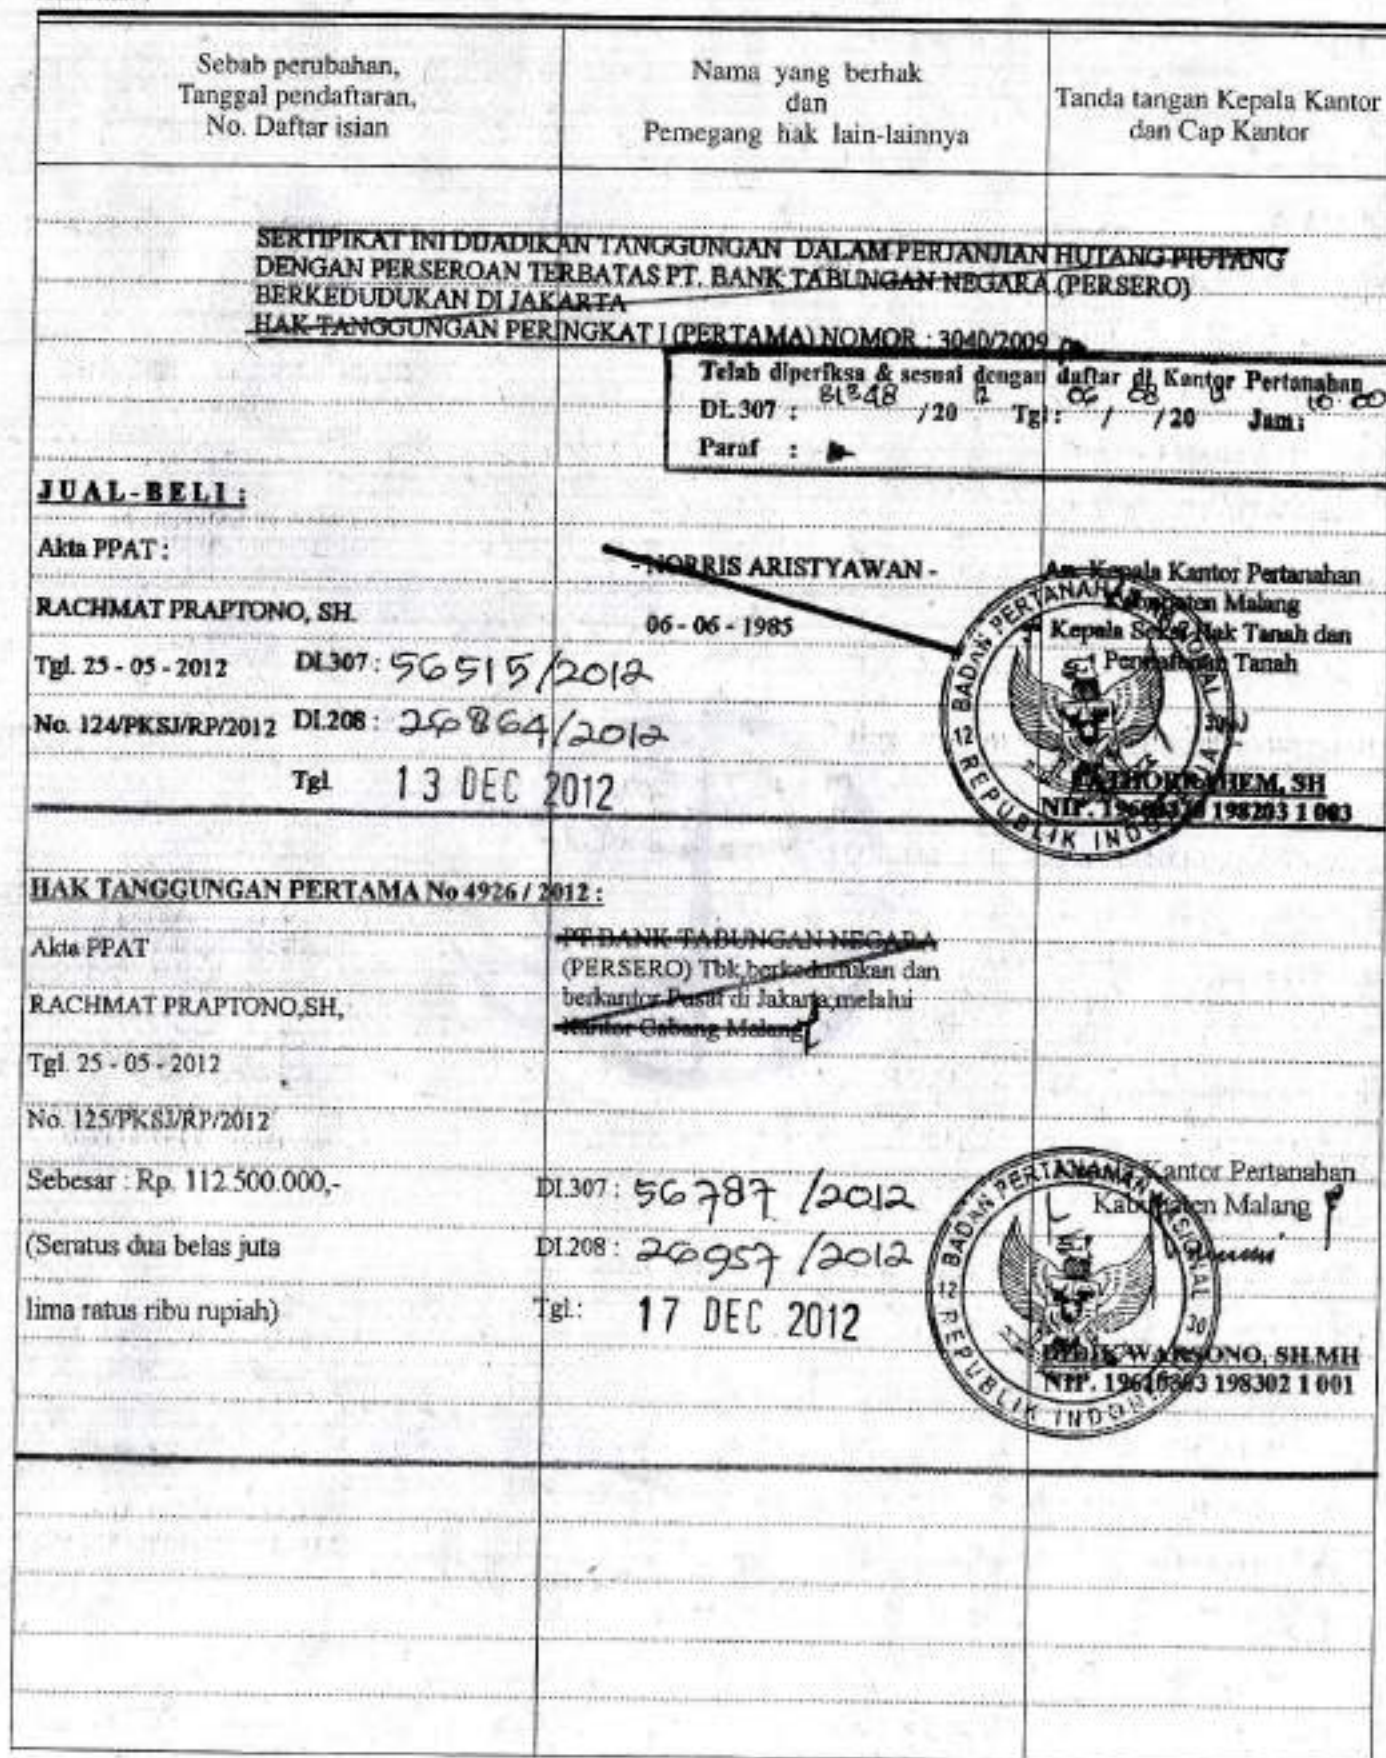 Sebab perubahan,
Tanggal pendaftaran,
No. Daftar isian
Nama yang berhak
dan
Pemegang hak lain-lainnya
Tanda tangan Kepala Kantor
dan Cap Kantor
SERTIPIKAT INI DIJADIKAN TANGGUNGAN DALAM PERJANJIAN HUTANG PIUTANG
DENGAN PERSEROAN TERBATAS PT. BANK TABUNGAN NEGARA (PERSERO)
BERKEDUDUKAN DI JAKARTA
HAK TANGGUNGAN PERINGKAT I (PERTAMA) NOMOR : 3040/2009
Telah diperiksa & sesuai dengan daftar di Kantor Pertanahan
DI.307 : 81348 /20 12 Tgl : 06 / 08 /20 Jam : 10.00
Paraf :
JUAL-BELI :
Akta PPAT :
RACHMAT PRAPTONO, SH.
Tgl. 25 - 05 - 2012 DI.307 : 56515/2012
No. 124/PKSJ/RP/2012 DI.208 : 26864/2012
Tgl. 13 DEC 2012
- NORRIS ARISTYAWAN -
06 - 06 - 1985
An. Kepala Kantor Pertanahan
Kabupaten Malang
Kepala Seksi Hak Tanah dan
Pendaftaran Tanah
BADAN PERTANAHAN NASIONAL
12
REPUBLIK INDONESIA
HEM, SH
NIP. 198203 1 003
HAK TANGGUNGAN PERTAMA No 4926 / 2012 :
Akta PPAT
RACHMAT PRAPTONO,SH,
Tgl. 25 - 05 - 2012
No. 125/PKSJ/RP/2012
Sebesar : Rp. 112.500.000,-
(Seratus dua belas juta
lima ratus ribu rupiah)
PT BANK TABUNGAN NEGARA
(PERSERO) Tbk,berkedudukan dan
berkantor Pusat di Jakarta,melalui
Kantor Cabang Malang
DI.307 : 56787 /2012
DI.208 : 26957 /2012
Tgl.: 17 DEC 2012
Kantor Pertanahan
Kabupaten Malang
BADAN PERTANAHAN NASIONAL
12 30
REPUBLIK INDONESIA
DIDIK WARSONO, SH.MH
NIP. 19610303 198302 1 001